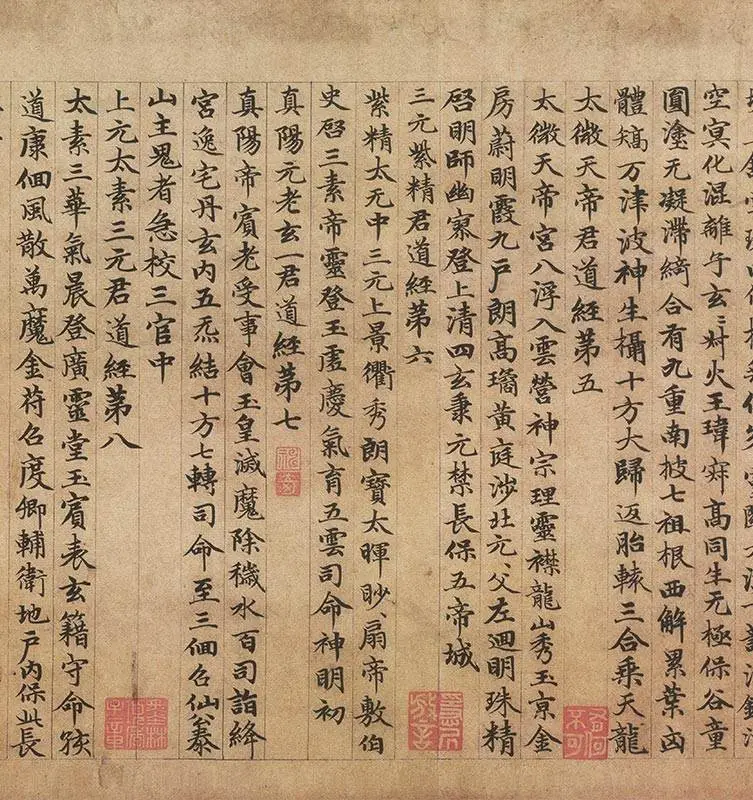 空冥化混離午玄ミ對火王瑋寂高同生无極保谷童
圓塗无凝滯綺合有九重南披七祖根西解累葉凶
體矯万津波神生攝十方大歸返胎轅三合乘天龍
太微天帝君道經第五
太微天帝宮八浮入雲營神宗理靈襟龍山秀玉京金
房蔚明霞九戶朗高璚黃庭涉北元父左迴明珠精
啓明師幽寮登上清四玄秉元禁長保五帝城
三元紫精君道經第六
紫精太无中三元上景衢秀朗寶太暉眇扇帝敷伯
史啓三素帝靈登玉虛慶氣育五雲司命神明初
真陽元老玄一君道經第七
真陽帝賓老受事會玉皇滅魔除穢水百司詣絳
宮逸宅丹玄内五炁結十方七轉司命至三佪召仙翁泰
山主鬼者急校三官中
上元太素三元君道經第八
太素三華氣晨登廣靈堂玉賓表玄籍守命孩
道康佪風散萬魔金符召度卿輔衛地戶内保此長